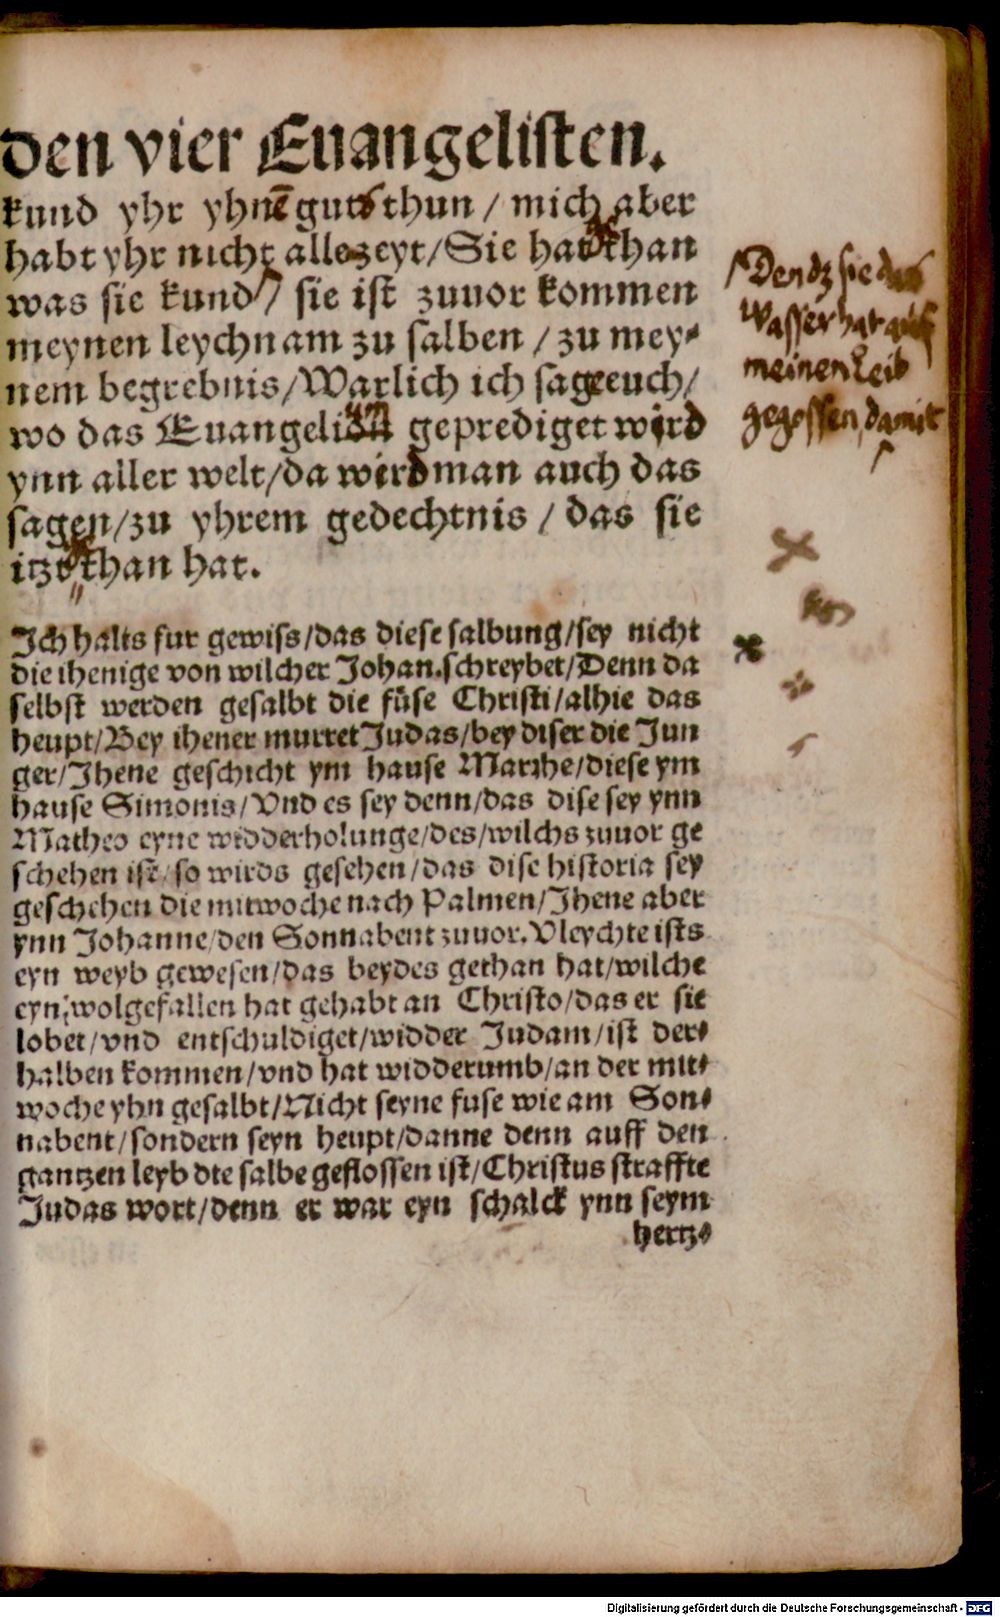 den vier Euangelisten.
kund yhr yhnē guts thun / mich aber
habt yhr nicht allezeyt/Sie hat than
was sie kund / sie ist zuuor kommen
meynen leychnam zu salben / zu mey-
nem begrebnis/Warlich ich sage euch/
wo das Euangelion geprediget wird
ynn aller welt/da wird man auch das
sagen/zu yhrem gedechtnis / das sie
itzt than hat.
Den dz sie das
Wasser hat auff
meinen Leib
gegossen, damit
Ich halts fur gewiss/das diese salbung/sey nicht
die ihenige von wilcher Johan.schreybet/Denn da
selbst werden gesalbt die füse Christi/alhie das
heupt/Bey ihener murret Judas/bey diser die Jun
ger/Jhene geschicht ym hause Marthe/diese ym
hause Simonis/Vnd es sey denn/das dise sey ynn
Matheo eyne widderholunge/des/wilchs zuuor ge
schehen ist/so wirds gesehen/das dise historia sey
geschehen die mitwoche nach Palmen/Jhene aber
ynn Johanne/den Sonnabent zuuor.Vleychte ists
eyn weyb gewesen/das beydes gethan hat/wilche
eyn wolgefallen hat gehabt an Christo/das er sie
lobet/vnd entschuldiget/widder Judam/ist der-
halben kommen/vnd hat widderumb/an der mit-
woche yhn gesalbt/Nicht seyne fuse wie am Son-
nabent/sondern seyn heupt/danne denn auff den
gantzen leyb dte salbe geflossen ist/Christus straffte
Judas wort/denn er war eyn schalck ynn seym
hertz-
Digitalisierung gefördert durch die Deutsche Forschungsgemeinschaft - DFG